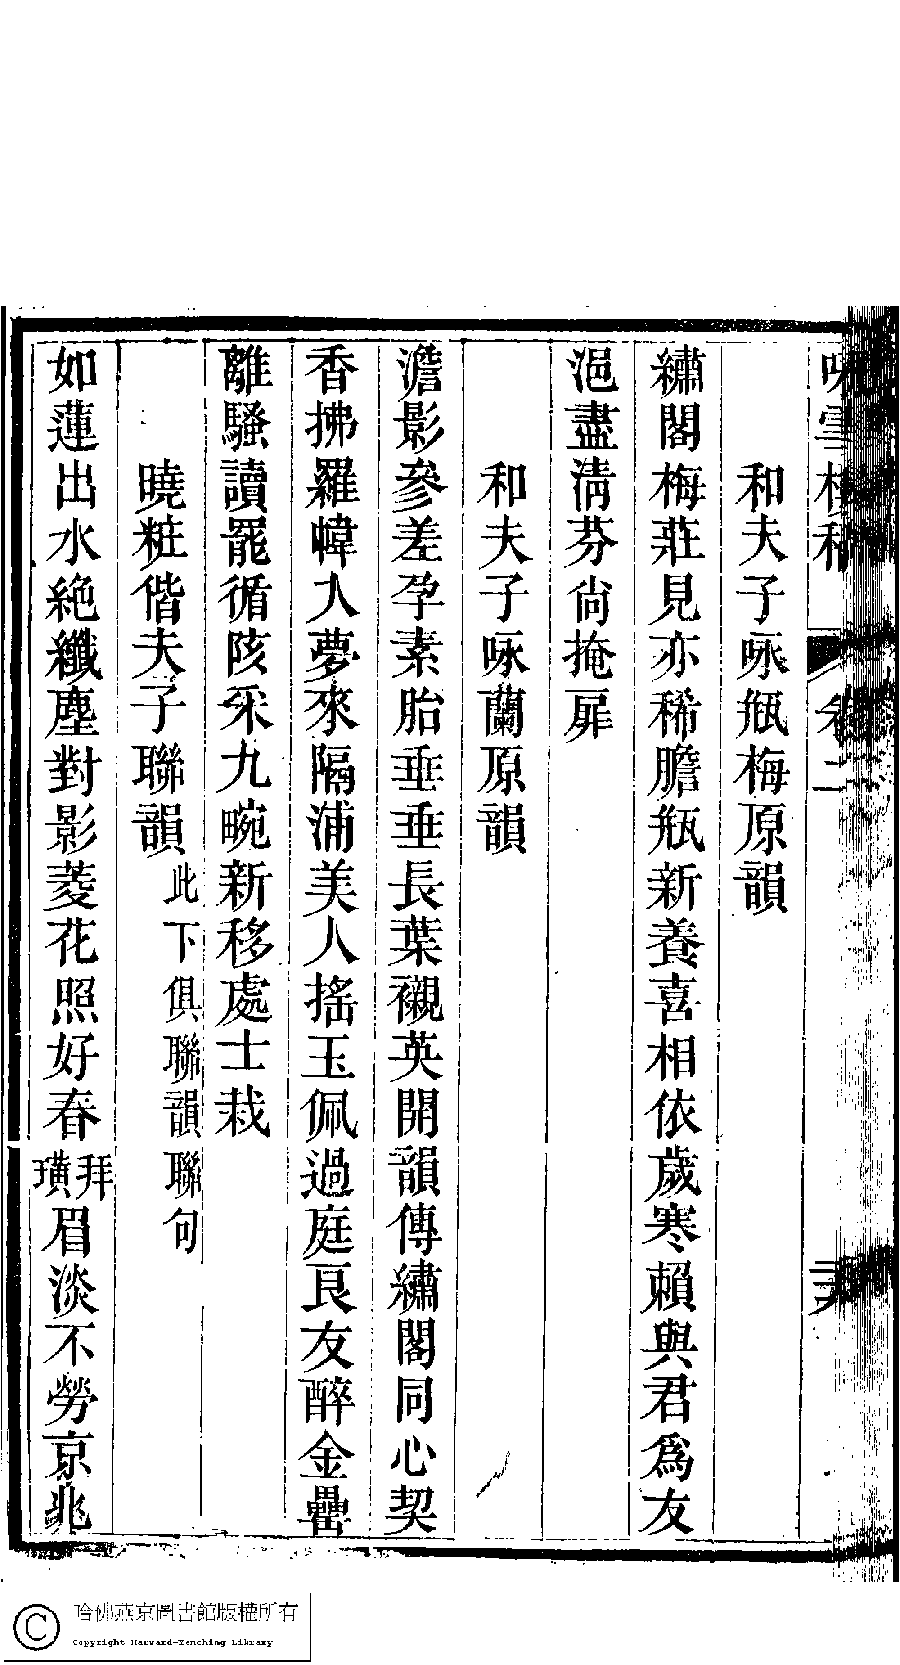 和夫子咏瓶梅原韻
繡閣梅莊見亦稀膽瓶新養喜相依歲寒賴與君爲友
浥盡清芬尙掩扉
和夫子咏蘭原韻
澹影參差孕素胎垂垂長葉襯英開韻傳繡閣同心契
香拂羅幃人夢來隔浦美人搖玉佩過庭良友醉金罍
離騷讀罷循陔采九畹新移處士栽
曉粧偕夫子聯韻此下俱聯韻聯句
如蓮出水絶纖塵對影菱花照好春拜璜眉淡不勞京兆
哈佛燕京圖書館版權所有
Copyright Harvard-Yenching Library